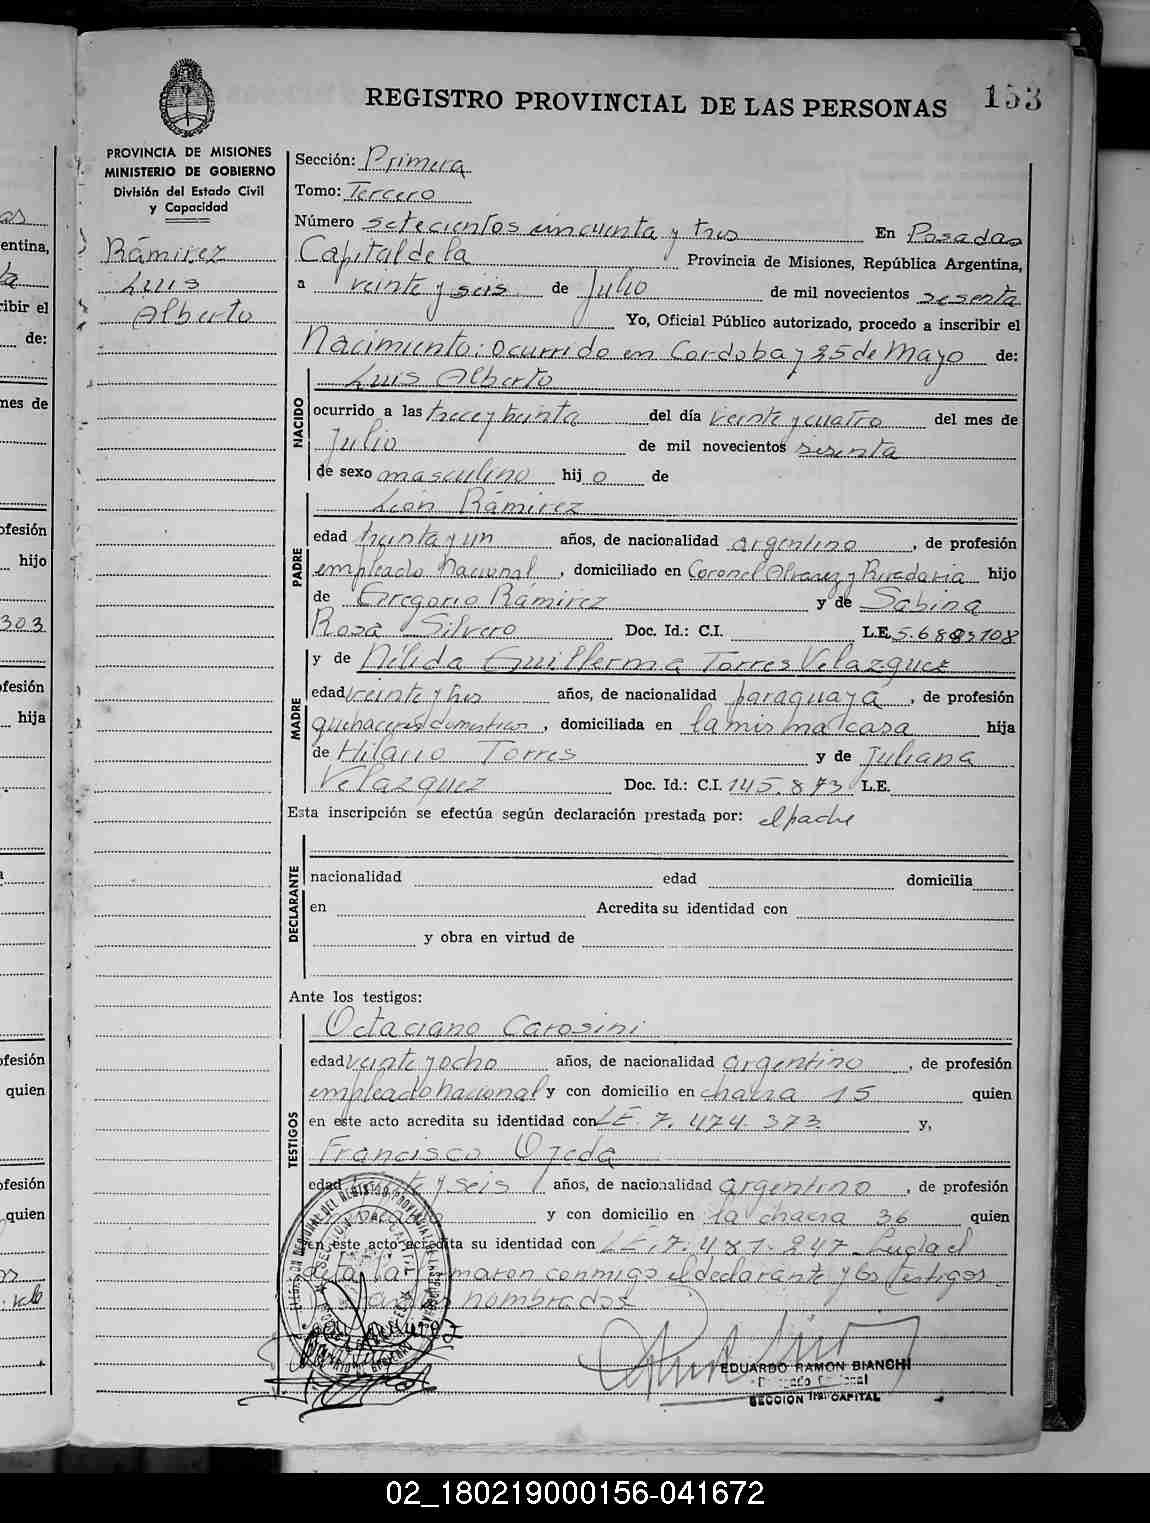 REGISTRO PROVINCIAL DE LAS PERSONAS 153
PROVINCIA DE MISIONES
MINISTERIO DE GOBIERNO
División del Estado Civil
y Capacidad
Rámirez
Luis
Alberto
Sección: Primera
Tomo: Tercero
Número setecientos cincuenta y tres En Posadas
Capital de la Provincia de Misiones, República Argentina,
a veinte y seis de Julio de mil novecientos sesenta
Yo, Oficial Público autorizado, procedo a inscribir el
Nacimiento: ocurrido en Cordoba y 25 de Mayo de:
NACIDO
Luis Alberto
ocurrido a las trece y treinta del día veinte y cuatro del mes de
Julio de mil novecientos sesenta
de sexo masculino hij o de
PADRE
León Rámirez
edad treinta y un años, de nacionalidad argentino, de profesión
empleado Nacional, domiciliado en Coronel Alvarez y Rivadavia hijo
de Gregorio Rámirez y de Sabina
Rosa Silvero Doc. Id.: C.I. L.E.
MADRE
y de Nélida Guillerma Torres Velazquez
edad veinte y tres años, de nacionalidad paraguaya, de profesión
quehaceres domesticos, domiciliada en la misma casa hija
de Hilario Torres y de Juliana
Velazquez Doc. Id.: C.I. 145.873 L.E.
Esta inscripción se efectúa según declaración prestada por: el padre
DECLARANTE
nacionalidad edad domicilia
en Acredita su identidad con
y obra en virtud de
Ante los testigos:
TESTIGOS
Octaciano Carosini
edad veinte y ocho años, de nacionalidad argentino, de profesión
empleado nacional y con domicilio en chacra 15 quien
en este acto acredita su identidad con LE. 7.474.373 y,
Francisco Ojeda
edad y seis años, de nacionalidad argentino, de profesión
y con domicilio en la chacra 36 quien
en este acto acredita su identidad con LE. 7.481.247 Leida el
acta la firmaron conmigo el declarante y los testigos
nombrados
EDUARDO RAMON BIANCHI
SECCION 1ra. CAPITAL
02_180219000156-041672